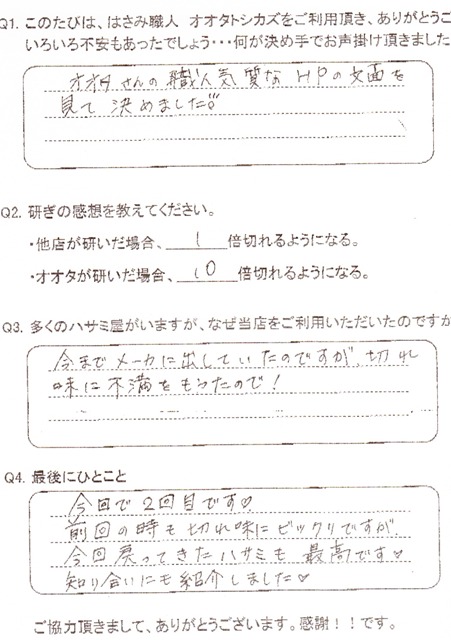 Q1. このたびは、はさみ職人 オオタトシカズをご利用頂き、ありがとうご
いろいろ不安もあったでしょう・・・何が決め手でお声掛け頂きました
オオタさんの職人気質な HPの文面を
見て 決めました!!
Q2. 研ぎの感想を教えてください。
・他店が研いだ場合、 1 倍切れるようになる。
・オオタが研いだ場合、 10 倍切れるようになる。
Q3. 多くのハサミ屋がいますが、なぜ当店をご利用いただいたのですか
今までメーカに出していたのですが、切れ
味に不満をもったので!
Q4. 最後にひとこと
今回で2回目です♡
前回の時も切れ味にビックリですが、
今回戻ってきたハサミも 最高です♡
知り合いにも紹介しました♡
ご協力頂きまして、ありがとうございます。感謝!!です。